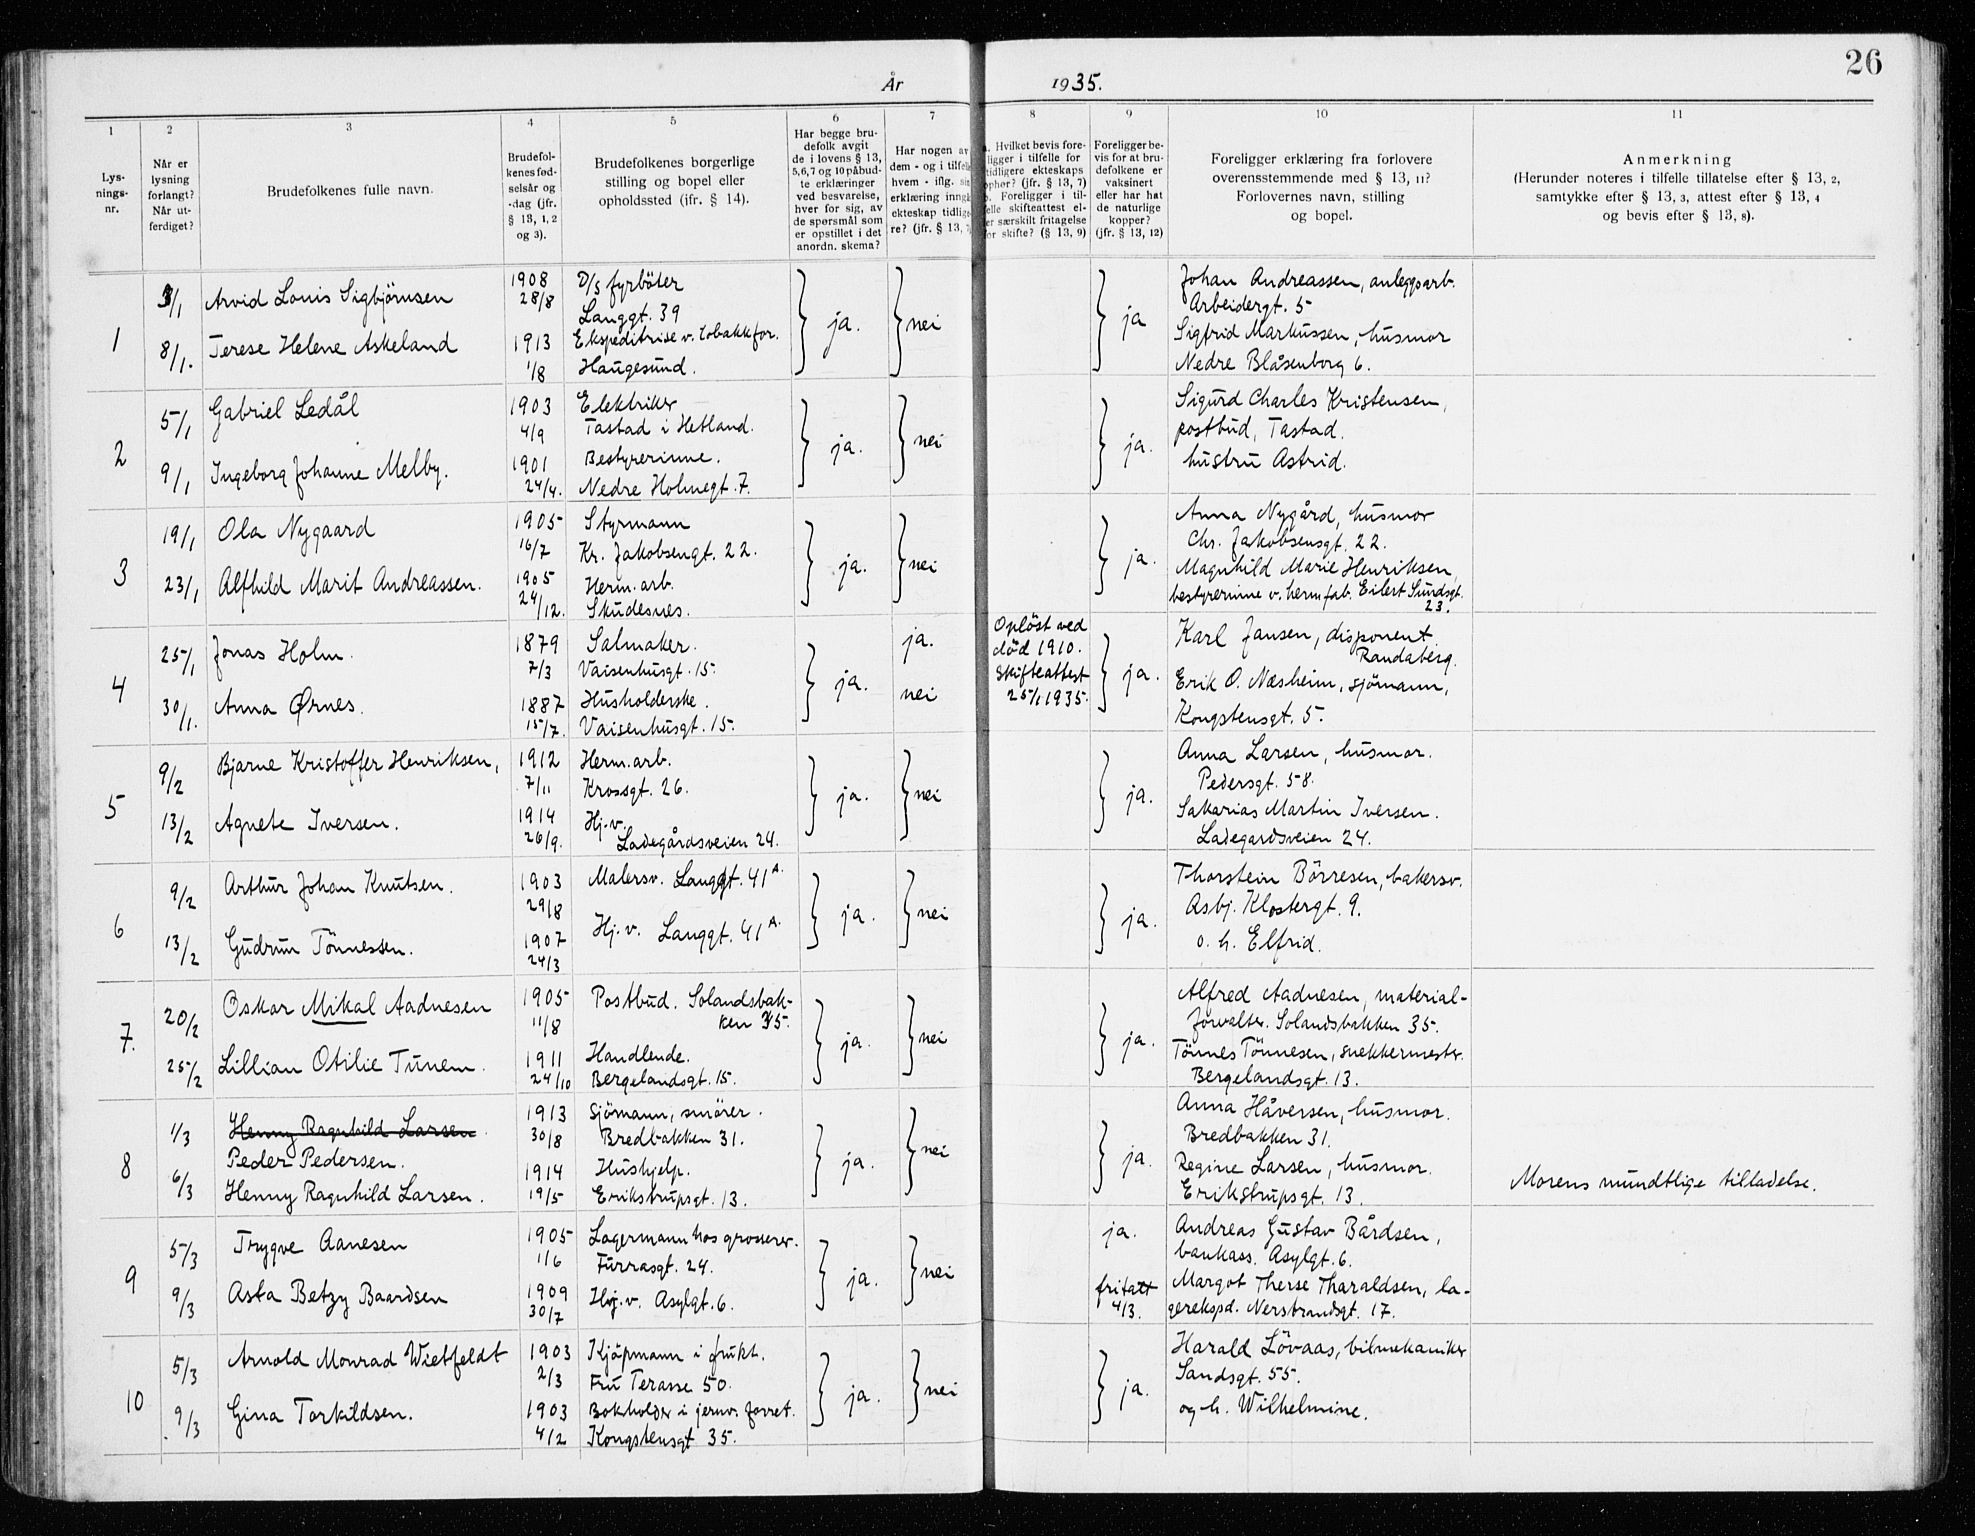 26
År 1935.
1
2
3
4
5
6
7
8
9
10
11
Lys-
nings-
nr.
Når er
lysning
forlangt?
Når ut-
ferdiget?
Brudefolkenes fulle navn.
Brudefol-
kenes fød-
selsår og
-dag (jfr.
§ 13, 1, 2
og 3).
Brudefolkenes borgerlige
stilling og bopel eller
opholdssted (jfr. § 14).
Har begge bru-
defolk avgit
de i lovens § 13,
5,6,7 og 10 påbud-
te erklæringer
ved besvarelse,
hver for sig, av
de spørsmål som
er opstillet i det
anordn. skema?
Har nogen av
dem - og i tilfelle
hvem - iflg. sin
erklæring inngå
ekteskap tidlige-
re? (jfr. § 13, 7
a. Hvilket bevis fore-
ligger i tilfelle for
tidligere ekteskaps
ophør? (jfr. § 13, 7)
b. Foreligger i til-
felle skifteattest el-
ler særskilt fritagelse
for skifte? (§ 13, 9)
Foreligger be-
vis for at bru-
defolkene er
vaksinert
eller har hat
de naturlige
kopper?
(jfr. § 13, 12)
Foreligger erklæring fra forlovere
overensstemmende med § 13, 11?
Forlovernes navn, stilling
og bopel.
Anmerkning
(Herunder noteres i tilfelle tillatelse efter § 13, 2,
samtykke efter § 13, 3, attest efter § 13, 4
og bevis efter § 13, 8).
1
3/1 Arvid Louis Sigbjörnsen 1908 28/8 D/s fyrböter
Langgt. 39
8/1. Terese Helene Askeland 1913 1/8 Ekspeditrise v. tobakkfor.
Haugesund.
ja. nei ja
Johan Andreassen, anleggsarb.
Arbeidergt. 5
Sigfrid Markussen, husmor
Nedre Blåsenborg 6.
2
5/1 Gabriel Ledål 1903 4/9 Elektriker
Tastad i Hetland.
9/1 Ingeborg Johanne Melby. 1901 24/4. Bestyrerinne.
Nedre Holmegt. 7.
ja. nei ja.
Sigurd Charles Kristensen,
postbud, Tastad.
hustru Astrid.
3
19/1 Ola Nygaard 1905 16/7 Styrmann
Kr. Jakobsengt. 22.
23/1 Alfhild Marit Andreassen. 1905 24/12. Herm. arb.
Skudesnes.
ja. nei ja.
Anna Nygård, husmor
Chr. Jakobsensgt. 22.
Magnhild Marie Henriksen,
bestyrerinne v. hermfab. Eilert Sundsgt.
23.
4
25/1 Jonas Holm. 1879 7/3 Salmaker.
Vaisenhusgt. 15.
30/1. Anna Ørnes. 1887 15/7. Husholderske.
Vaisenhusgt. 15.
ja. ja. nei
Opløst ved
död 1910.
Skifteattest
25/1 1935.
ja.
Karl Jansen, disponent
Randaberg.
Erik O. Næsheim, sjömann,
Kongstensgt. 5.
5
9/2 Bjarne Kristoffer Henriksen, 1912 7/11 Herm. arb.
Krossgt. 26.
13/2 Agnete Iversen. 1914 26/9. Hj. v.
Ladegårdsveien 24.
ja. nei ja.
Anna Larsen, husmor.
Pedersgt. 58.
Sakarias Martin Iversen.
Ladegardsveien 24.
6
9/2 Arthur Johan Knutsen. 1903 29/8 Malersv. Langgt. 41 A.
13/2 Gudrun Tönnessen. 1907 24/3 Hj. v. Langgt. 41 A.
ja. nei ja.
Thorstein Börresen, bakersv.
Asbj. Klostergt. 9.
o. h. Elfrid.
7.
20/2 Oskar Mikal Aadnesen 1905 11/8 Postbud. Solandsbak-
ken 35.
25/2 Lillian Otilie Tunem. 1911 24/10 Handlende.
Bergelandsgt. 15.
ja. nei ja.
Alfred Aadnesen, material-
forvalter. Solandsbakken 35.
Tönnes Tönnesen, snekkermester.
Bergelandsgt. 13.
8
1/3 Henny Ragnhild Larsen.
Peder Pedersen. 1913 30/8 Sjömann, smörer.
Bredbakken 31.
6/3 Henny Ragnhild Larsen. 1914 19/5 Hushjelp.
Erikstrupsgt. 13.
ja. nei ja.
Anna Håversen, husmor.
Bredbakken 31.
Regine Larsen, husmor.
Erikstrupsgt. 13.
Morens mundtlige tilladelse.
9
5/3 Trygve Aanesen 1905 1/6 Lagermann hos grosserer.
Furrasgt. 24.
9/3 Asta Betzy Baardsen 1909 30/7 Hj. v. Asylgt. 6.
ja. nei ja.
fritatt
4/3.
Andreas Gustav Bårdsen,
bankass. Asylgt. 6.
Margot Therse Tharaldsen, la-
gerekspd. Nerstrandsgt. 17.
10
5/3 Arnold Monrad Wietfeldt 1903 2/3 Kjøpmann i frukt.
Fru Terasse 50.
9/3 Gina Torkildsen. 1903 4/2 Bokholder i jernv. forret.
Kongstensgt 35.
ja. nei ja.
Harald Lövaas, bilmekaniker
Sandsgt. 55.
og h. Wilhelmine.